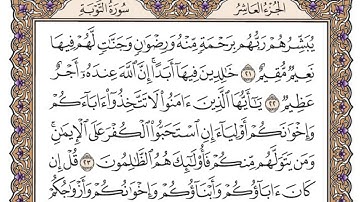 سُورَةُ التَّوْبَةِ
الجُزْءُ العَاشِرُ
يُبَشِّرُهُمْ رَبُّهُم بِرَحْمَةٍ مِّنْهُ وَرِضْوَٰنٍ وَجَنَّٰتٍ لَّهُمْ فِيهَا
نَعِيمٌ مُّقِيمٌ ٢١ خَٰلِدِينَ فِيهَآ أَبَدًا إِنَّ ٱللَّهَ عِندَهُۥٓ أَجْرٌ
عَظِيمٌ ٢٢ يَٰٓأَيُّهَا ٱلَّذِينَ ءَامَنُوا۟ لَا تَتَّخِذُوٓا۟ ءَابَآءَكُمْ
وَإِخْوَٰنَكُمْ أَوْلِيَآءَ إِنِ ٱسْتَحَبُّوا۟ ٱلْكُفْرَ عَلَى ٱلْإِيمَٰنِ
وَمَن يَتَوَلَّهُم مِّنكُمْ فَأُو۟لَٰٓئِكَ هُمُ ٱلظَّٰلِمُونَ ٢٣ قُلْ إِن
كَانَ ءَابَآؤُكُمْ وَأَبْنَآؤُكُمْ وَإِخْوَٰنُكُمْ وَأَزْوَٰجُكُمْ